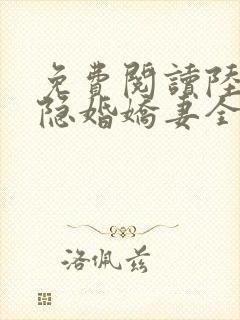 免費閱讀陸
隐婚嬌妻全
洛佩兹